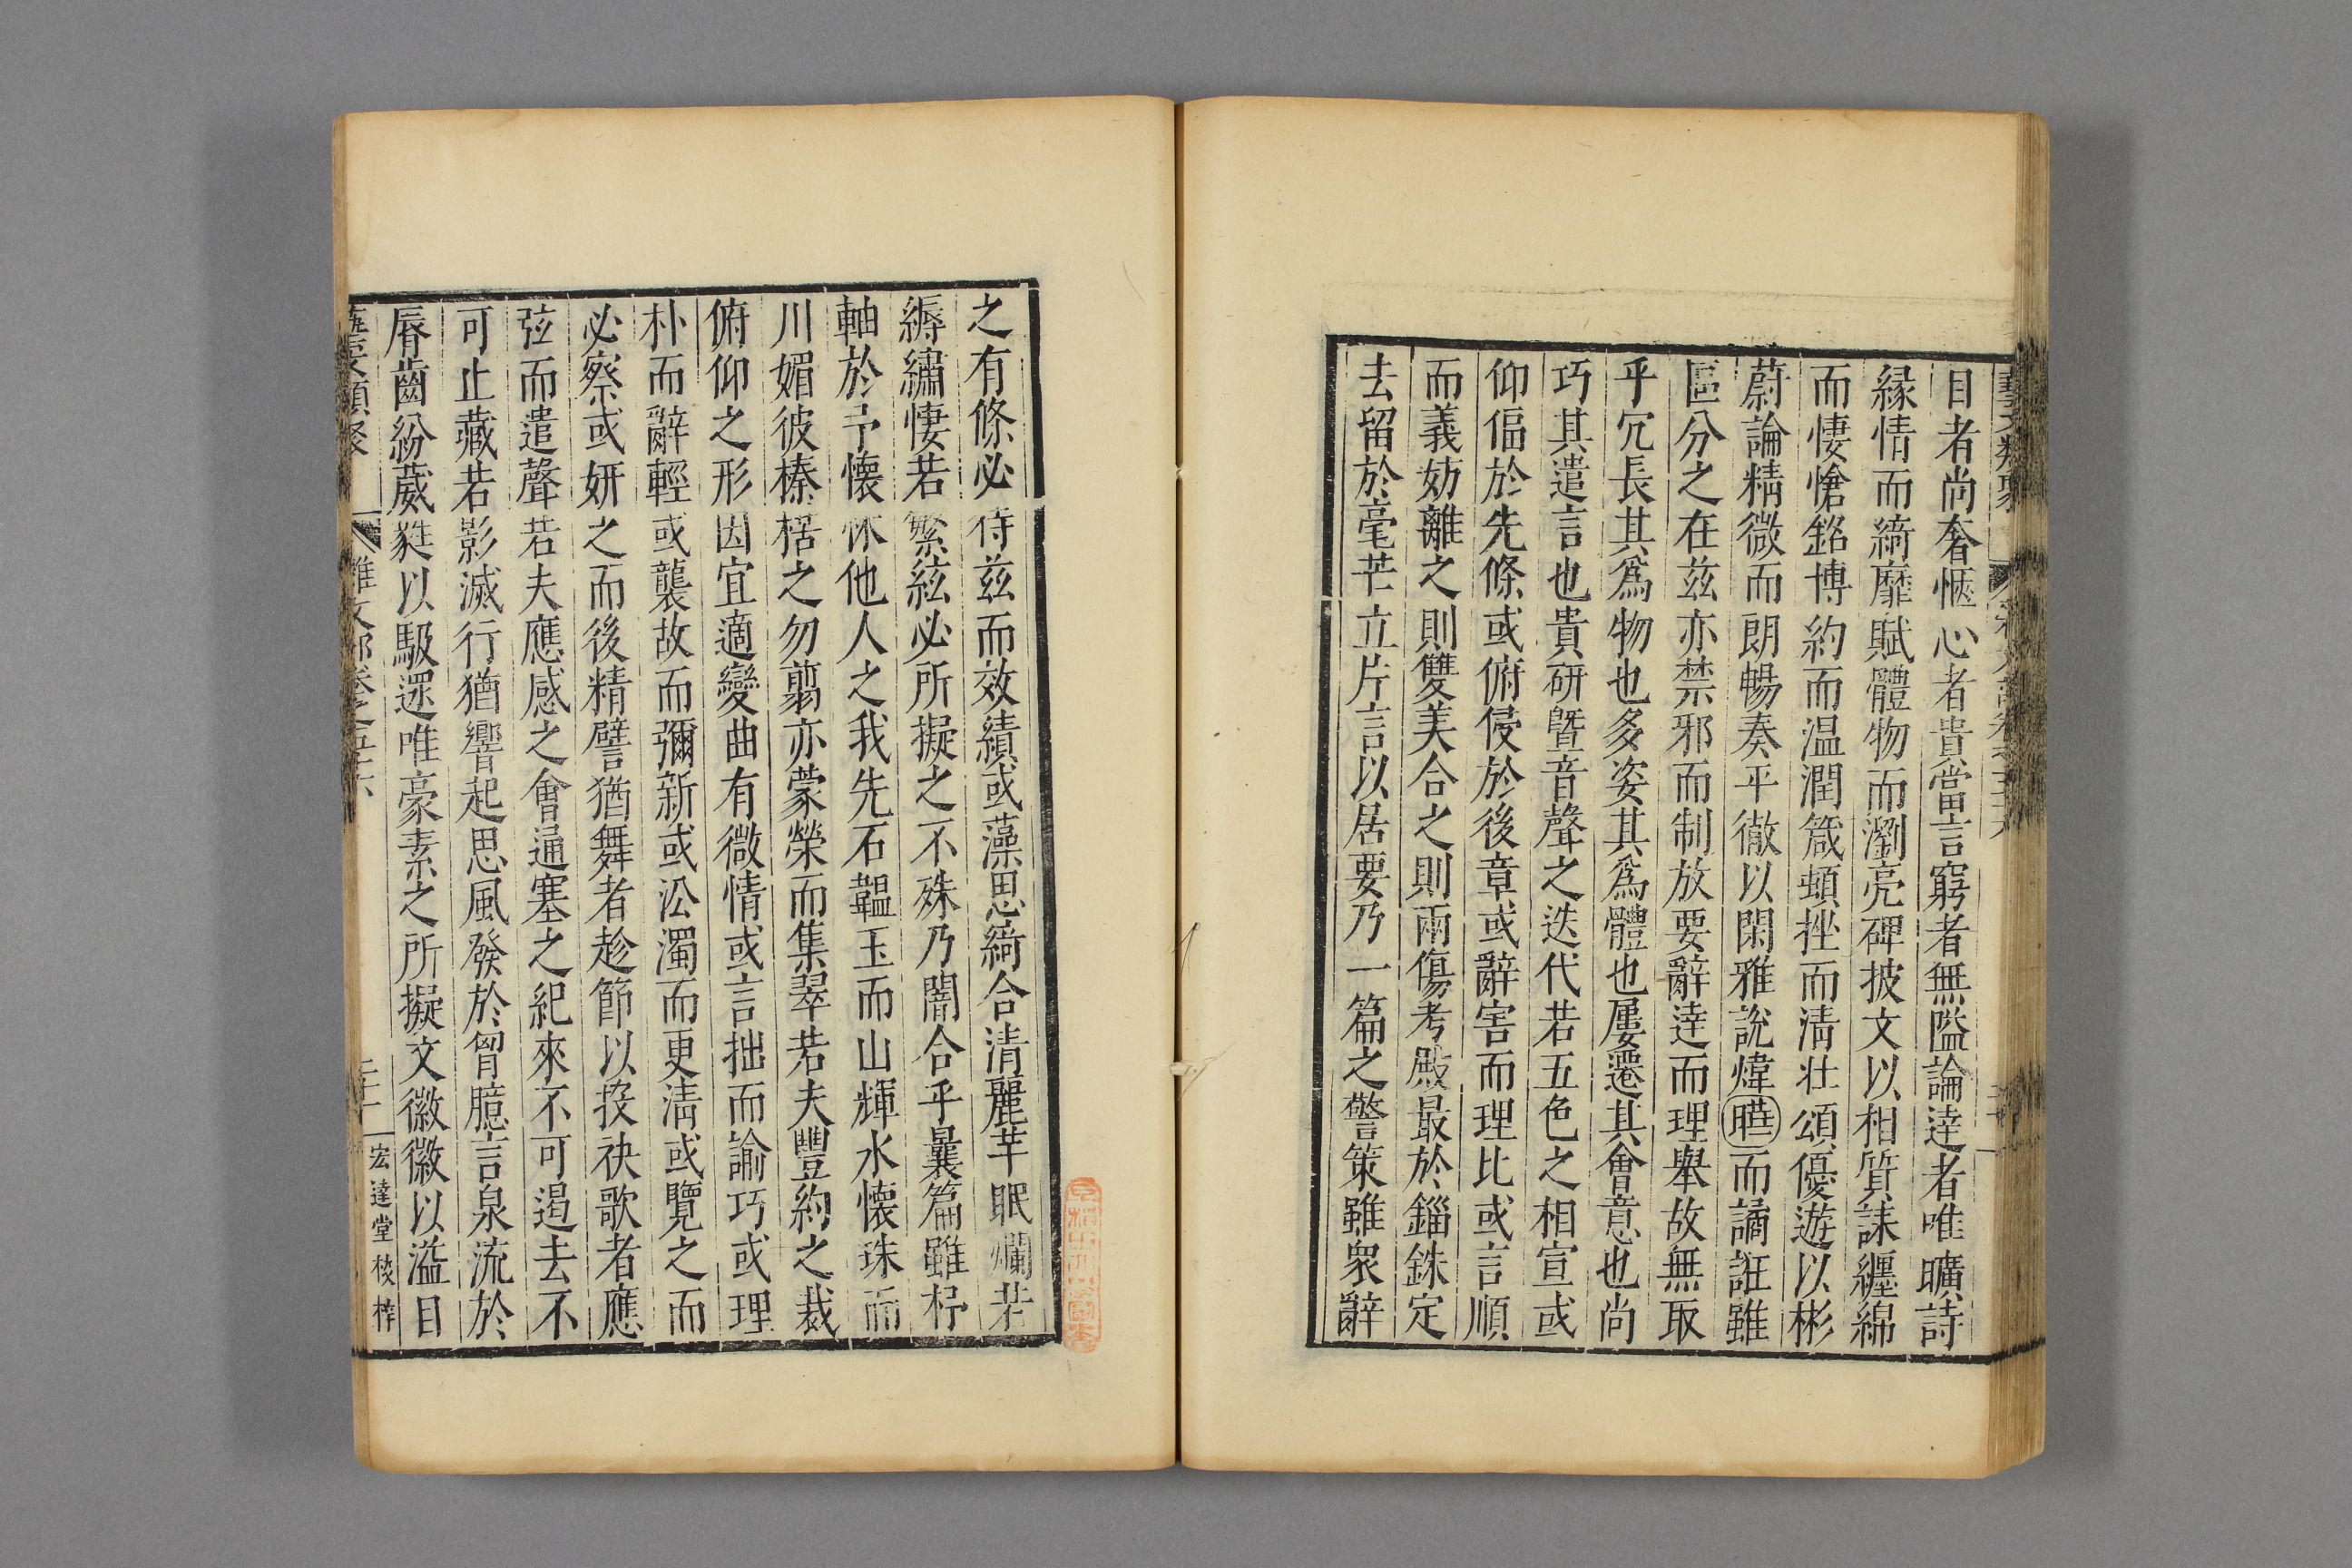 藝文類聚
目者尚奢愜心者貴當言窮者無隘論達者唯曠詩
緣情而綺靡賦體物而瀏亮碑披文以相質誄纏綿
而悽愴銘博約而温潤箴頓挫而清壯頌優遊以彬
蔚論精微而朗暢奏平徹以閑雅說煒曄而譎誑雖
區分之在茲亦禁邪而制放要辭達而理舉故無取
乎冗長其爲物也多姿其爲體也屢遷其會意也尚
巧其遣言也貴研曁音聲之迭代若五色之相宣或
仰偪於先條或俯侵於後章或辭害而理比或言順
而義妨離之則雙美合之則兩傷考殿最於錙銖定
去留於毫芒立片言以居要乃一篇之警策雖衆辭
之有條必待茲而效績或藻思綺合清麗芊眠爛若
縟繡悽若繁絃必所擬之不殊乃闇合乎曩篇雖杼
軸於予懷怵他人之我先石韞玉而山輝水懷珠而
川媚彼榛楛之勿翦亦蒙榮而集翠若夫豐約之裁
俯仰之形因宜適變曲有微情或言拙而諭巧或理
朴而辭輕或襲故而彌新或㳂濁而更清或覽之而
必察或妍之而後精譬猶舞者趁節以投袂歌者應
弦而遣聲若夫應感之會通塞之紀來不可遏去不
可止藏若影滅行猶響起思風發於胷臆言泉流於
脣齒紛葳蕤以馺遝唯豪素之所擬文徽徽以溢目
藝文類聚 雜文部卷之五十六 宏達堂校梓